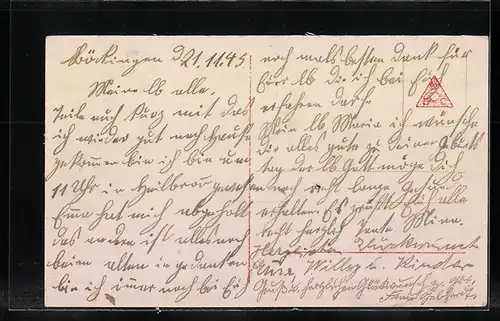 Böckingen d 21.11.45
Meine lb alle.
Teile euch kurz mit das
ich wieder gut nach Hause
gekommen bin ich bin um
11 Uhr in Heilbron gewesen
Emma hat mich abgeholt
das andere ist alles noch
beim alten in gedanken
bin ich immer noch bei Euch
noch mals besten Dank für
Eure lb die ich bei Euch
erfahren darf.
Meine lb Maria ich wünsche
Dir alles gute zu deinem Geburts
tag der lb Gott möge dich
noch recht lange gesund
erhalten. Es grüßt Euch alle
recht herzlich
Herzlichen Glückwunsch
Eure Willy u. Kinder
Gruß u. herzlichen Glückwunsch